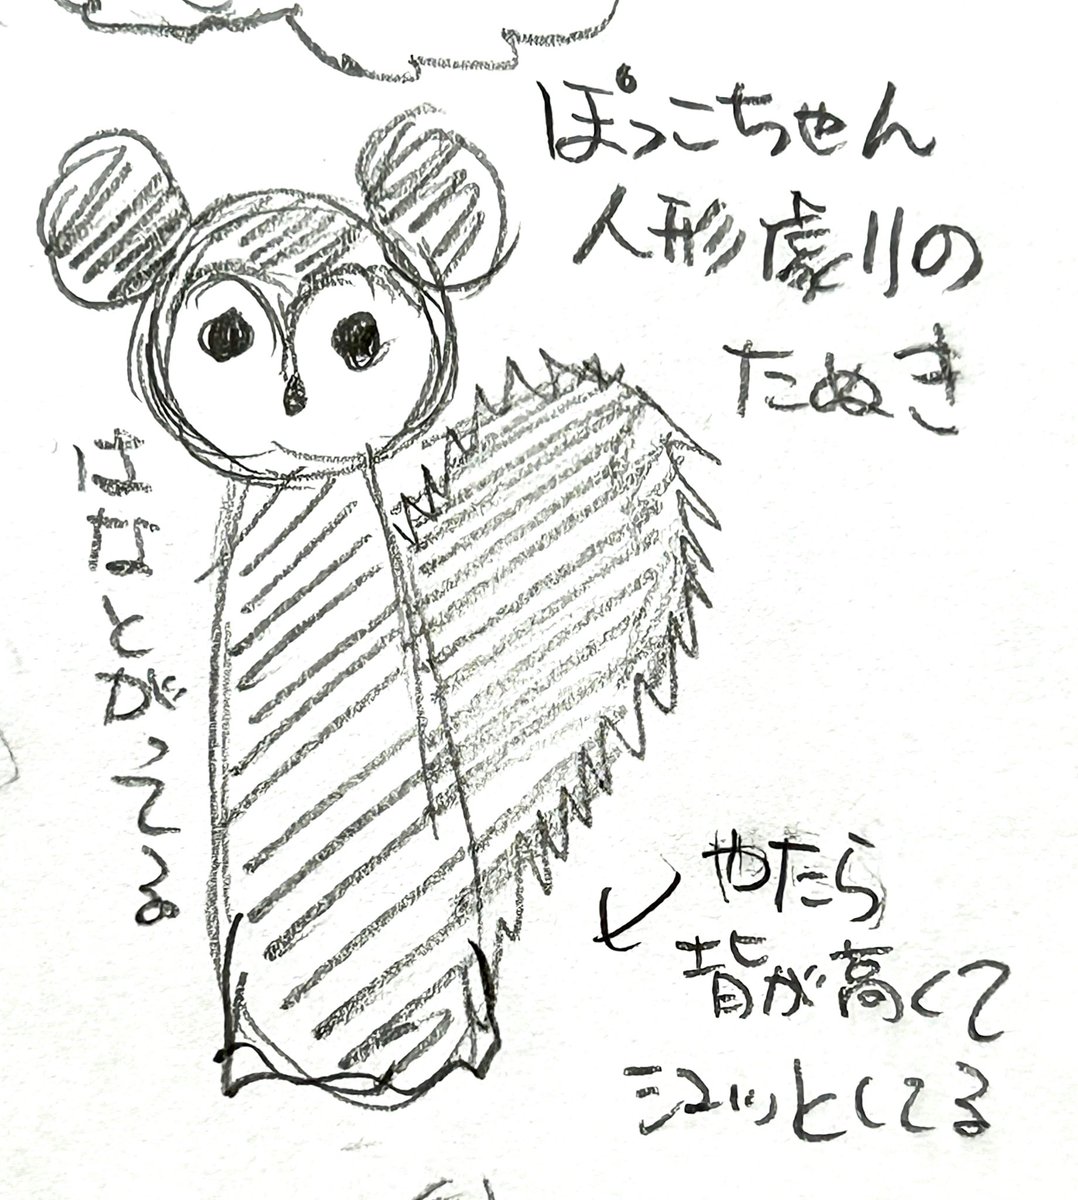 ぽっこちゃん
人形劇の
たぬき
はなとがってる
やたら
背が高くて
シュッとしてる